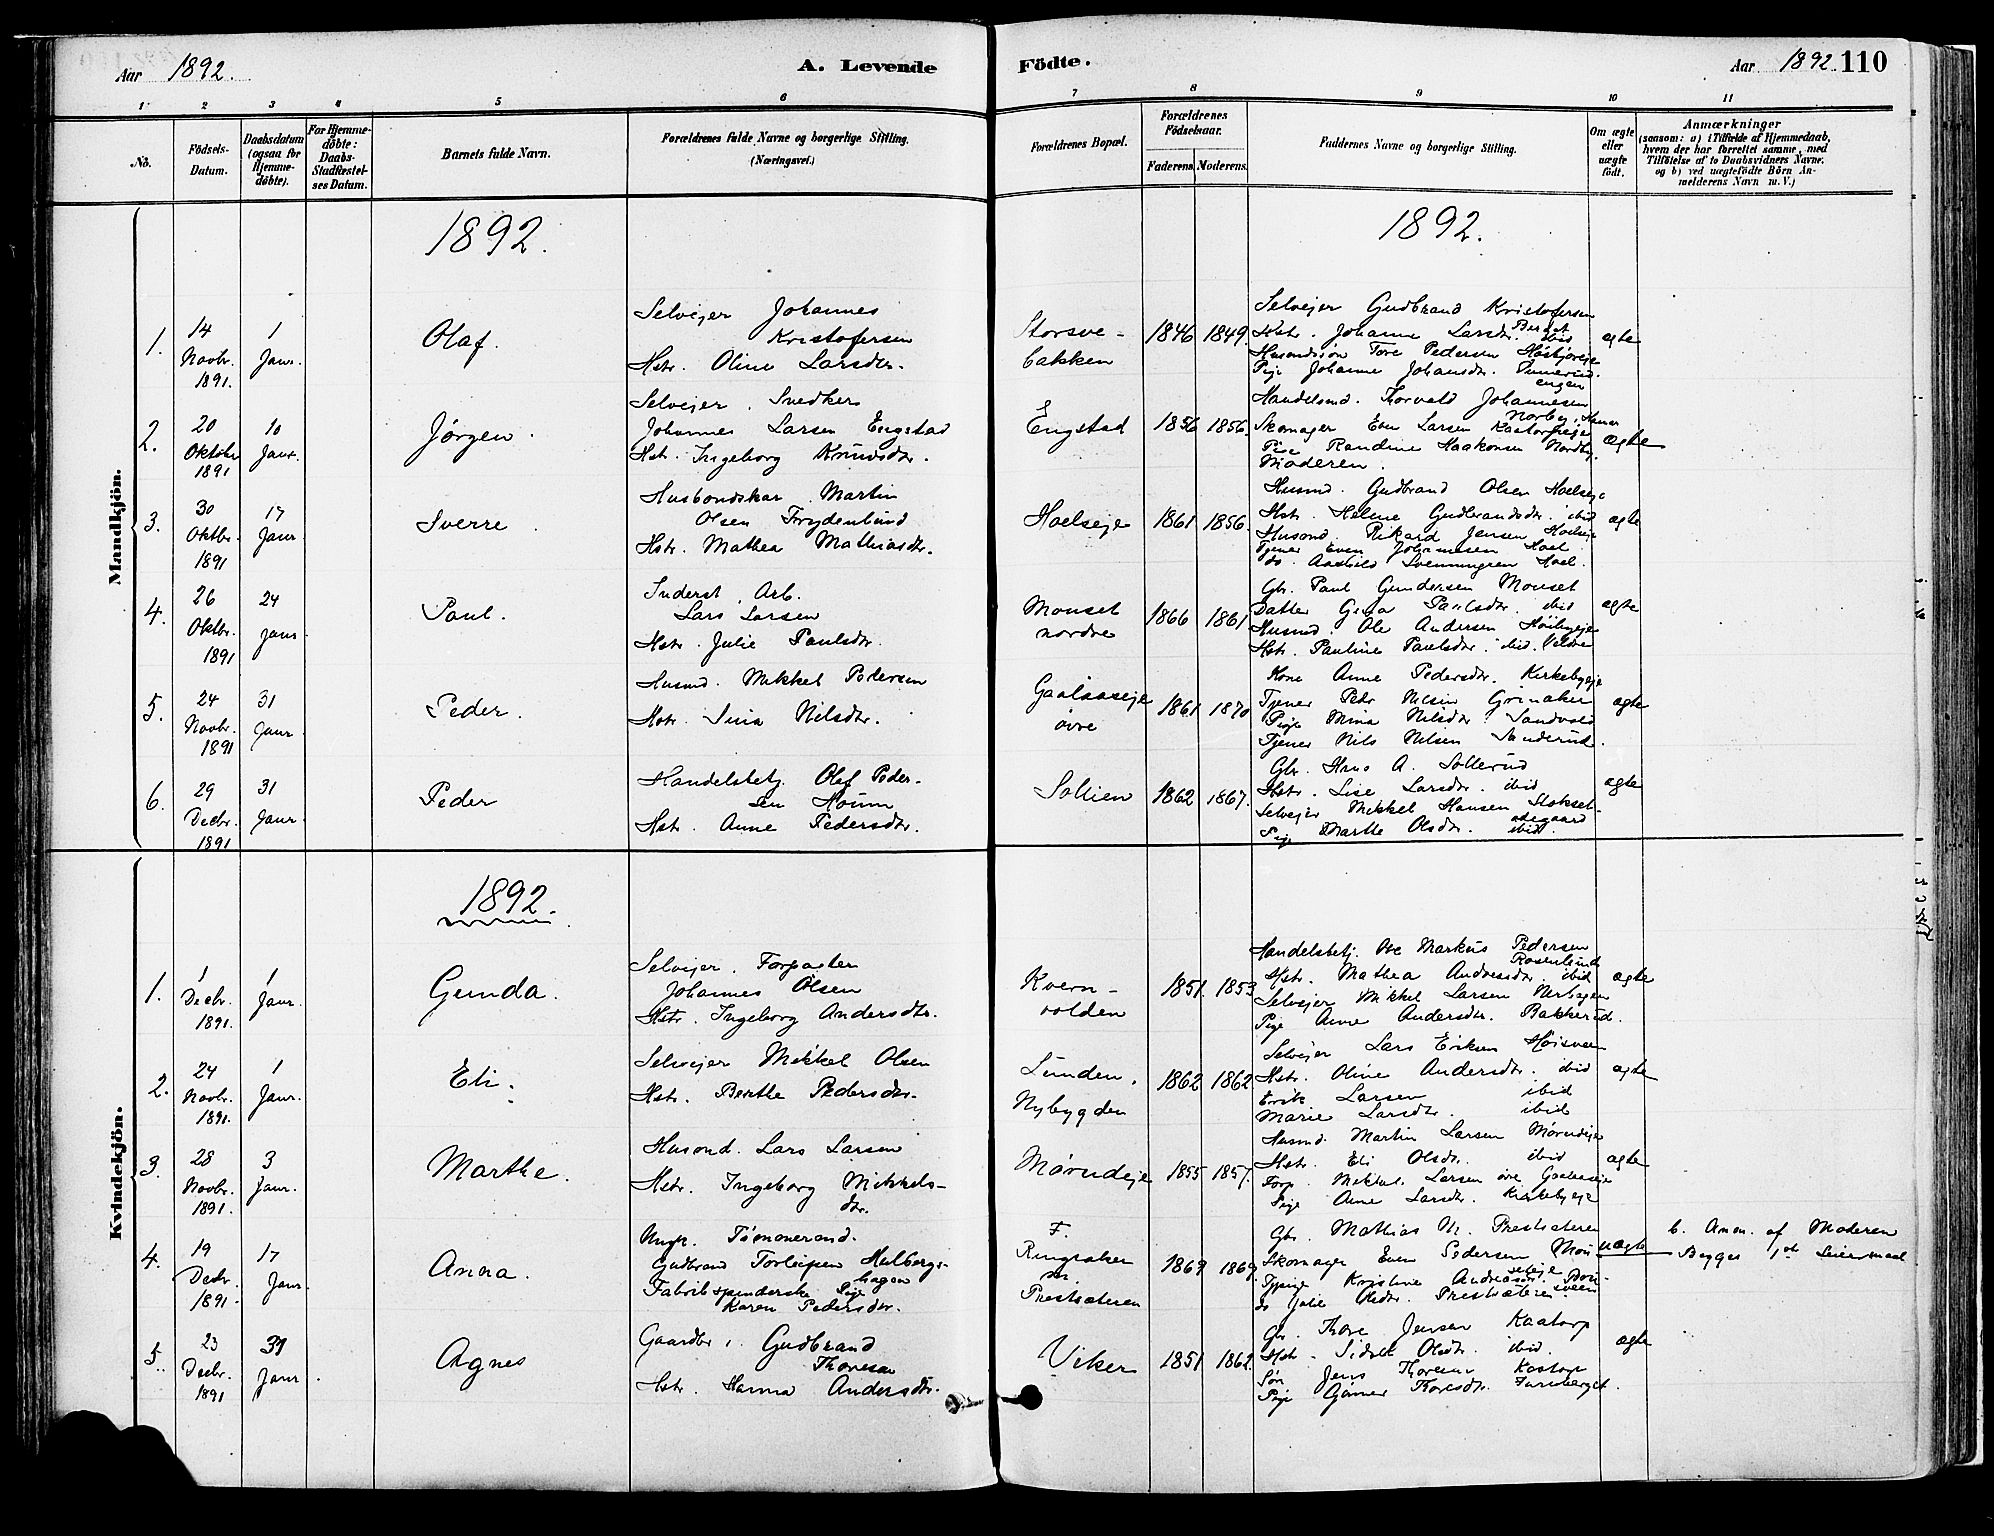 Aar 1892.
A. Levende
Födte.
Aar 1892. 110
1 2 3 4 5 6 7 8 9 10 11
No.
Födsels-
Datum.
Daabsdatum
(ogsaa for
Hjemme-
döbte).
For Hjemme-
döbte:
Daabs-
Stadfæstel-
ses Datum.
Barnets fulde Navn.
Forældrenes fulde Navne og borgerlige Stilling.
(Næringsvei.)
Forældrenes Bopæl.
Forældrenes
Födselsaar.
Faderens Moderens.
Faddernes Navne og borgerlige Stilling.
Om ægte
eller
uægte
födt.
Anmærkninger
(saasom: a) i Tilfælde af Hjemmedaab,
hvem der har forrettet samme, med
Tilföielse af to Daabsvidners Navne.
og b) ved uægtefödte Börn An-
melderens Navn m. V.)
Mandkjön.
1892.
1892.
1.
14
Novbr.
1891.
1
Janr.
Olaf.
Selvejer Johannes
Kristofersen
Hstr. Oline Larsdtr.
Storsve-
bakken
1846 1849.
Selvejer Gudbrand Kristofersen
Berget
Hstr. Johanne Larsdtr. ibid
Husmdssøn Tore Pedersen
Pige Johanne Johansdtr.
engen
ægte
2.
20
Oktobr
1891
10
Janr.
Jørgen.
Selvejer. Snedker
Johannes Larsen Engstad
Hstr. Ingeborg Knudsdtr.
Engstad
1856 1856.
Handelsmd. Thorvald Johannesen
Skomager Even Larsen Kaatorpseje
Pige Randine Haakonsen Nordby.
Moderen.
ægte
3.
30
Oktbr.
1891
17
Janr
Sverre.
Husbondskar Martin
Olsen Frydenlund
Hstr. Mathea Mathiasdtr.
Hoelseje
1861 1856.
Husmd. Gudbrand Olsen Hoelseje
Hstr. Helene Gudbrandsdtr. ibid
Husmd. Rikard Jensen Hoelseje
Tjener Even Johannesen Hoel
do. Aashild Svenningsen Hoel.
ægte
4.
26
Oktbr.
1891
24
Janr
Paul.
Inderst, Arb.
Lars Larsen
Hstr. Julie Paulsdtr.
Monset
nordre
1866 1861
Gbr. Paul Gundersen Monset
Datter Gina Paulsdtr. ibid
Husmd. Ole Andersen Høibyeje
Hstr. Pauline Paulsdtr. ibid. Veldre
ægte
5.
24
Novbr.
1891
31
Janr.
Peder.
Husmd. Mikkel Pedersen
Hstr. Sina Nilsdtr.
Gaalaaseje
øvre
1861 1870
Kone Anne Pedersdtr. Kirkebyeje
Tjener Pedr Nilsen Grinaker
Pige Mina Nilsdtr. Sandvold
Tjener Nils Nilsen Sanderud.
ægte
6.
29
Decbr.
1891
31
Janr.
Peder
Handelsbetj. Olaf Peder-
sen Moum
Hstr. Anne Pedersdtr.
Sollien
1862 1867.
Gbr. Hans A. Sollerud
Hstr. Lise Larsdtr. ibid
Selvejer Mikkel Hansen Stokset-
ødegaard
Pige Marthe Olsdtr. ibid.
ægte
Kvindekjön.
1892.
1.
1
Decbr.
1891.
1
Janr.
Gunda.
Selvejer. Forpagter
Johannes Olsen
Hstr. Ingeborg Andersdtr.
Kvern-
volden
1851. 1853
Handelsbetj. Ole Markus Pedersen
Rosenlund
Hstr. Mathea Andersdtr. ibid
Selvejer Mikkel Larsen
Pige Anne Andersdtr. Bakkerud.
ægte
2.
24
Novbr.
1891.
1
Janr.
Eli.
Selvejer Mikkel Olsen
Hstr. Berthe Pedersdtr.
Lunden.
Nybygden
1862 1862
Selvejer Lars Eriksen Høisveen
Hstr. Oline Andersdtr. ibid
Erik Larsen ibid
Marie Larsdtr. ibid
ægte
3.
28
Novbr.
1891.
3
Janr.
Marthe.
Husmd. Lars Larsen
Hstr. Ingeborg Mikkels-
dtr.
Mørudeje
1855 1857.
Husmd. Martin Larsen Mørudeje
Hstr. Eli Olsdtr. ibid
Forp. Mikkel Larsen øvre Gaalaaseje
Pige Anne Larsdtr. Kirkebyeje
ægte
4.
19
Decbr.
1891.
17
Janr.
Anna.
Ungk. Tømmermd.
Gudbrand Torleifsen Helberg-
hagen
Fabrikspinderske Pige
Karen Pedersdtr.
F.
Ringsaker
M.
Præstsæteren
1869 1869.
Gbr. Mathias N. Præstsæteren
Skomager Even Pedersen
Tjpige Kristine Andreasen.
do Julie Olsdtr. Præstsæteren
uægte
b. Anm. af Moderen
Begges 1ste Leiermaal
5.
23
Decbr.
1891
31
Janr.
Agnes
Gaardbr. Gudbrand
Thoresen
Hstr. Hanna Andersdtr.
Viker
1851 1862.
Gbr. Thore Jensen Kaatorp
Hstr. Sidsel Olsdtr. ibid.
Søn Jens Thoresen Kaatorp
Pige Gunner Thoresdtr. Furuberget.
ægte